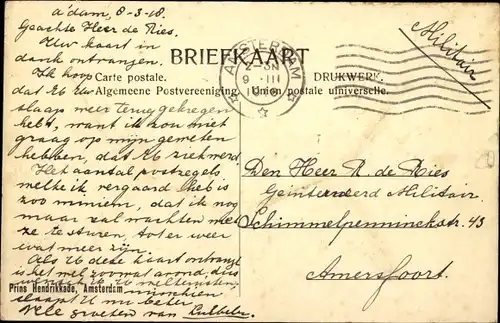 A'dam, 8-3-18.
Geachte Heer de Ries.
Uw kaart in
dank ontvangen.
Ik hoop
dat U Uw
slaap weer terug gekregen
hebt, want ik zou niet
graag op mijn geweten
hebben, dat U ziek werd
Het aantal postzegels
welke ik vergaard heb is
zoo miniem, dat ik nog
maar zal wachten met
ze te sturen, tot er weer
wat meer zijn.
Als U deze kaart ontvangt
is het wel zoowat avond, dus
wensch ik U welterusten,
slaapt U nu beter.
Vele groeten van
BRIEFKAART
Carte postale.
DRUKWERK.
Algemeene Postvereeniging. Union postale universelle.
AMSTERDAM
2-3N
9 III
1918
Militair
Den Heer R. de Ries
Geinterneerd Militair
Schimmelpenninckstr. 43
Amersfoort.
Prins Hendrikkade, Amsterdam